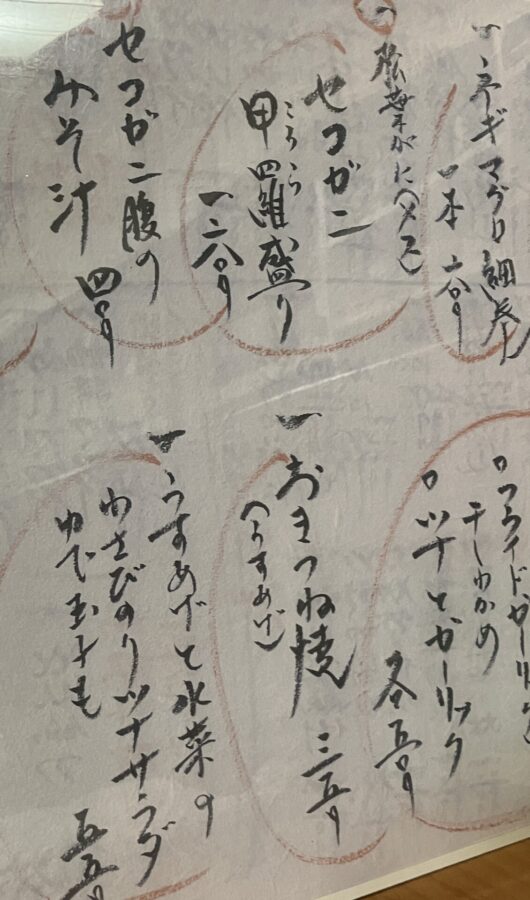 一 ネギマグロ細巻
一本 六〇〇円
松葉がに(メス)
セコガニ
こうら
甲羅盛り
セコガニ腹の
みそ汁
フライドガーリックと
干しわかめ
ツナとガーリック
各五〇〇円
一 おきつね焼
(うすあげ)
三五〇円
一 うすあげと水菜の
わさびのりツナサラダ
ゆで玉子も
五五〇円